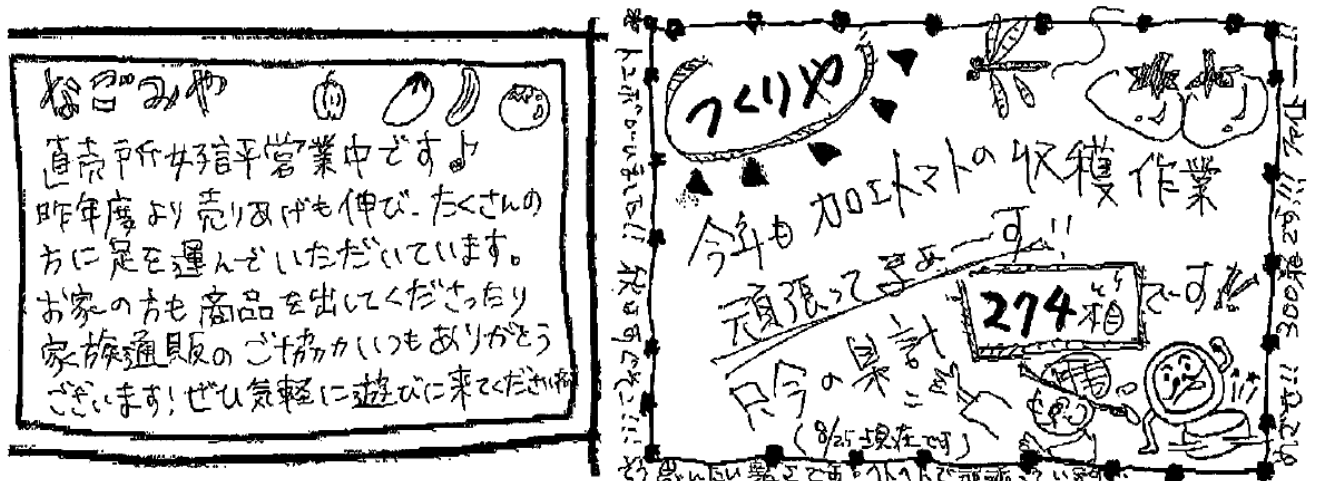 なごみや
直売所好評営業中です♪
昨年度より売りあげも伸び、たくさんの
方に足を運んでいただいています。
お家の方も商品を出してくださったり
家族通販のご協力いつもありがとう
ございます!ぜひ気軽に遊びに来てください
つくりや
今年も加工トマトの収穫作業
頑張ってまぁーす!!
只今の累計
274箱です!
(8/25現在です)
トンボがいました!! 秋はすぐそこ!!!
めざせ!! 300箱